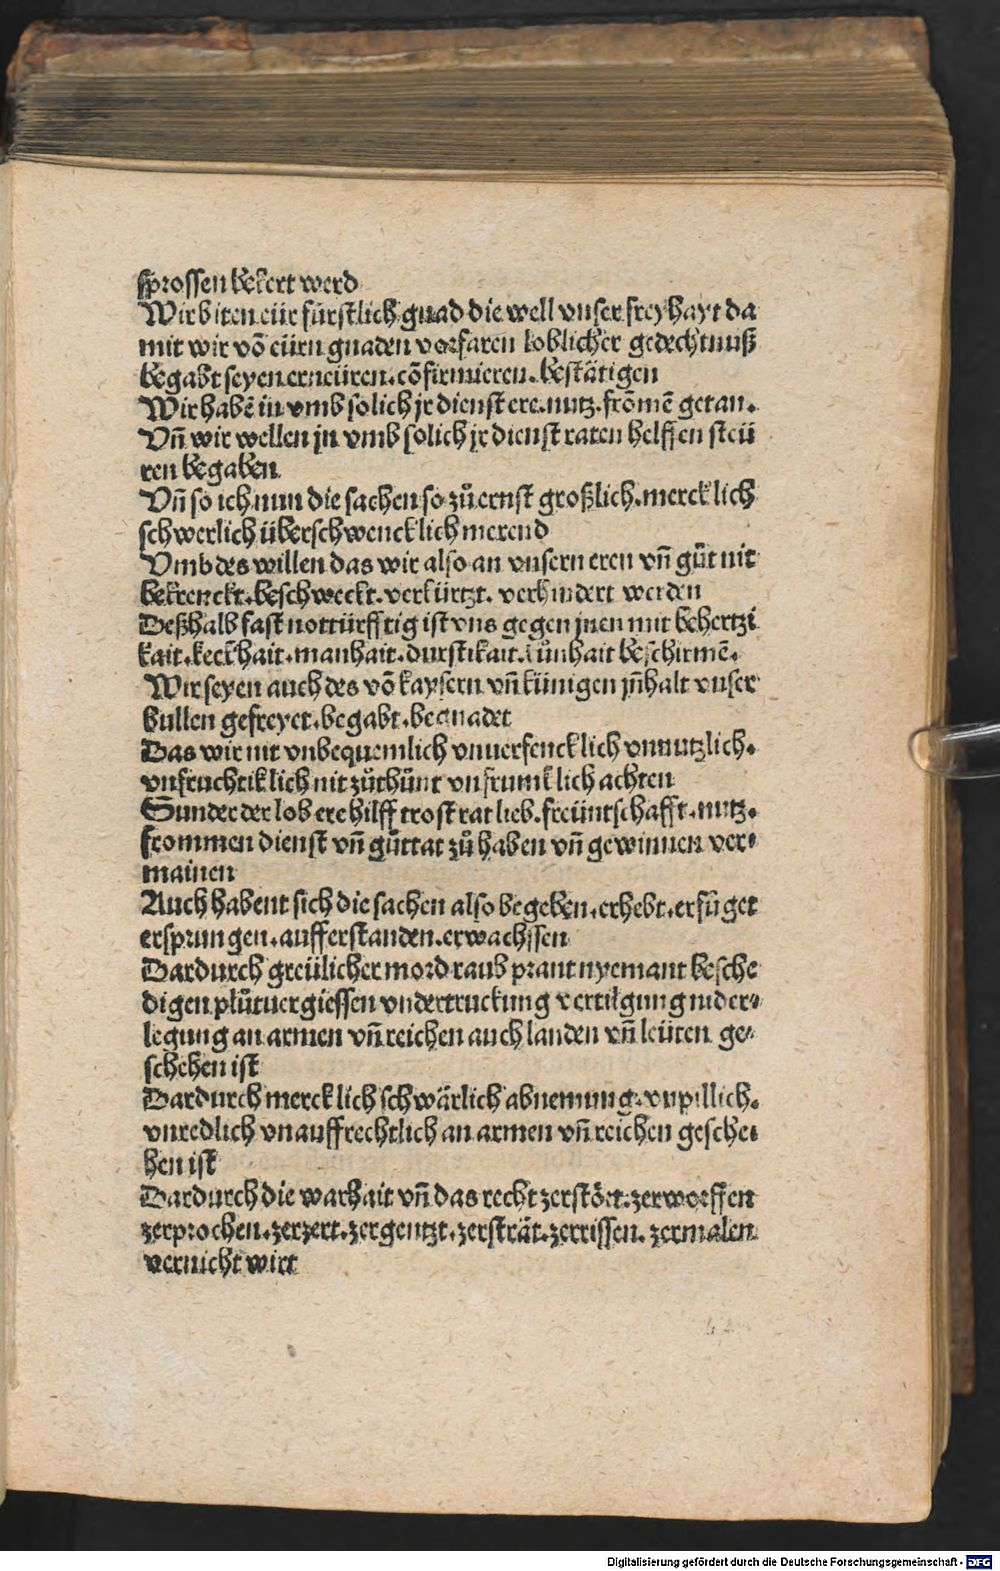 sprossen bekert werd
Wir biten eür fürstlich gnad die well vnser freyhayt da
mit wir võ eürn gnaden vorfaren loblicher gedechtnuß
begabt seyen erneüren. cõfirmieren. bestätigen
Wir habẽ in vmb solich jr dienst ere. nutz. frõmẽ getan.
Vñ wir wellen jn vmb solich jr dienst raten helffen steü
ren begaben
Vñ so ich nun die sachen so zů ernst großlich. mercklich
schwerlich überschwencklich merend
Vmb des willen das wir also an vnsern eren vñ gůt nit
bekrenckt. beschweckt. verkürtzt. verhindert werden
Deßhalb fast nottürfftig ist vns gegen jnen mit behertzi
kait. keckhait. manhait. durstikait. kůnhait beschirmẽ.
Wir seyen auch des võ kaysern vñ künigen jñhalt vnser
bullen gefreyet. begabt. begnadet
Das wir nit vnbequemlich vnuerfencklich vnnutzlich.
vnfruchtiklich nit zůthůnt vnfrumklich achten
Sunder der lob ere hilff trost rat lieb. freüntschafft. nutz.
frommen dienst vñ gůttat zů haben vñ gewinnen ver⸗
mainen
Auch habent sich die sachen also begeben. erhebt. erfůget
ersprungen. aufferstanden. erwachssen
Dardurch greülicher mord raub prant nyemant besche
digen plůtuergiessen vndertruckung vertilgung nider⸗
legung an armen vñ reichen auch landen vñ leüten ge⸗
schehen ist
Dardurch mercklich schwärlich abnemung. vnpillich.
vnredlich vnauffrechtlich an armen vñ reichen gesche⸗
hen ist
Dardurch die warhait vñ das recht zerstört. zerworffen
zerprochen. zerzert. zergentzt. zersträt. zerrissen. zermalen
vernicht wirt
Digitalisierung gefördert durch die Deutsche Forschungsgemeinschaft - DFG